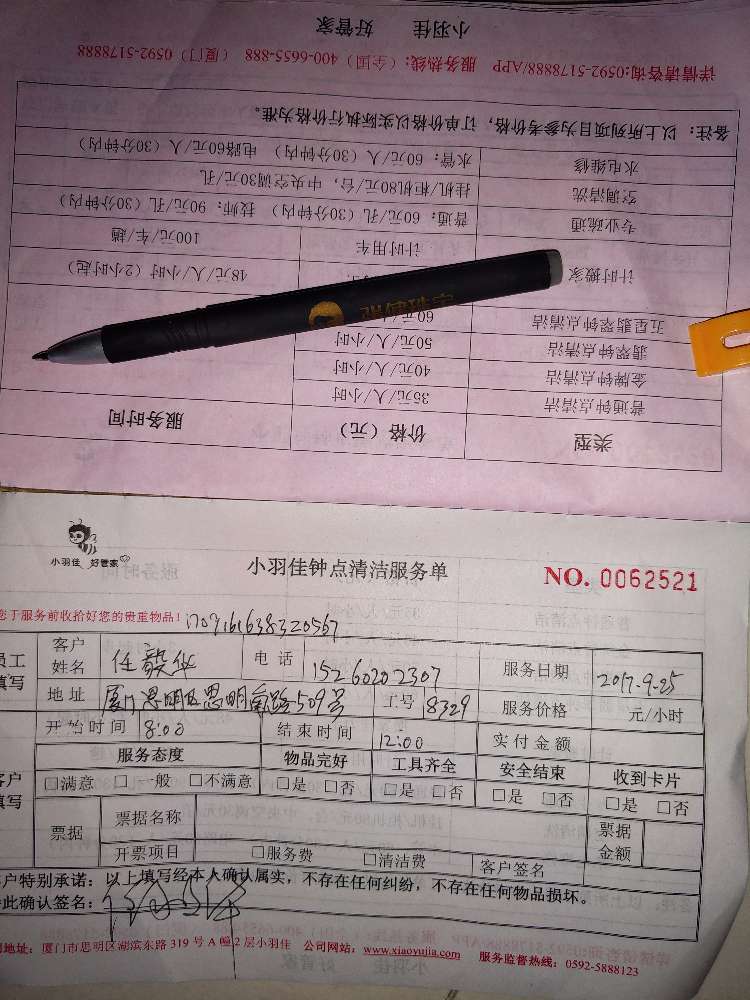 小羽佳 好管家
详情请咨询:0592-5178888/APP 服务热线:(全国)400-6655-888 (厦门)0592-5178888
备注:以上所列项目为参考价格,订单价格以实际执行价格为准。
水电维修 水管:60元/人(30分钟内) 电路60元/人(30分钟内)
空调清洗 挂机/柜机80元/台,中央空调30元/孔
专业疏通 普通:60元/孔(30分钟内) 技师:90元/孔(30分钟内)
计时用车 100元/车/趟
计时搬家 48元/人/小时(2小时起)
五星翡翠钟点清洁 60元/
翡翠钟点清洁 50元/人/小时
金牌钟点清洁 40元/人/小时
普通钟点清洁 35元/人/小时
类型 价格(元) 服务时间
小羽佳 好管家
小羽佳钟点清洁服务单 NO. 0062521
您于服务前收拾好您的贵重物品!
员工填写 客户姓名 任毅华 电话 15260202307 服务日期 2017.9.25
地址 厦门思明区思明南路509号 工号 8329 服务价格 元/小时
开始时间 8:00 结束时间 12:00 实付金额
服务态度 物品完好 工具齐全 安全结束 收到卡片
客户填写 □满意 □一般 □不满意 □是 □否 □是 □否 □是 □否 □是 □否
票据 票据名称 票据金额
开票项目 □服务费 □清洁费 客户签名
客户特别承诺:以上填写经本人确认属实,不存在任何纠纷,不存在任何物品损坏。
此确认签名:
地址:厦门市思明区湖滨东路319号A幢2层小羽佳 公司网站:www.xiaoyujia.com 服务监督热线:0592-5888123